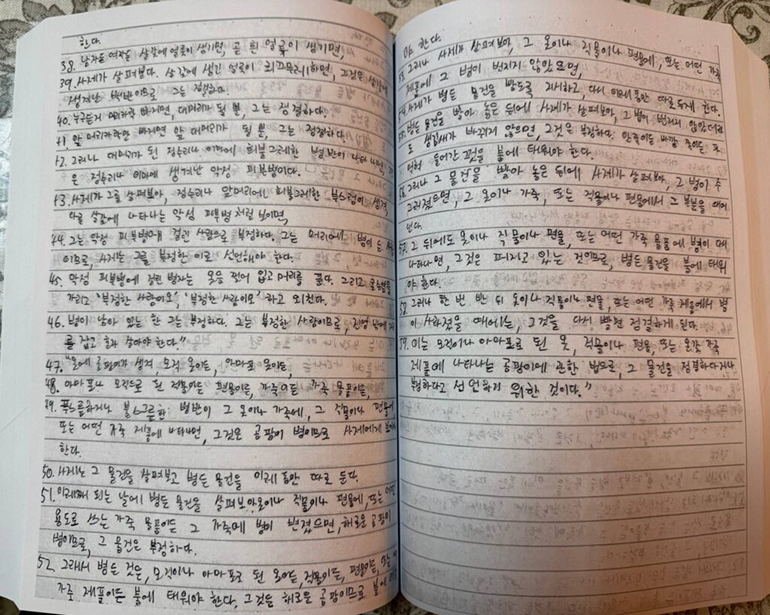 한다.
38. 남자든 여자든 살갗에 얼룩이 생기면, 곧 흰 얼룩이 생기면,
39. 사제가 살펴보다. 살갗에 생긴 얼룩이 희끄무레하면, 그것은 살갗에
생겨난 발진이므로 그는 정결하다.
40. 누구든지 머리카락이 빠지면, 대머리가 될 뿐, 그는 정결하다.
41. 앞 머리카락만 빠지면 앞 대머리가 될 뿐, 그는 정결하다.
42. 그러나 대머리가 된 정수리나 이마에 희불그레한 병반이 나타나면, 그것
은 정수리나 이마에 생겨난 악성 피부병이다.
43. 사제가 그를 살펴보아, 정수리나 앞머리에 희불그레한 부스럼이 생겨
다른 살갗에 나타나는 악성 피부병처럼 보이면,
44. 그는 악성 피부병에 걸린 사람으로 부정하다. 그는 머리에 병이 든 사람
이므로, 사제는 그를 부정한 이로 선언해야 한다.
45. 악성 피부병에 걸린 병자는 옷을 찢어 입고 머리를 푼다. 그리고 콧수염을
가리고 '부정한 사람이오', '부정한 사람이오' 하고 외친다.
46. 병이 남아 있는 한 그는 부정하다. 그는 부정한 사람이므로, 진영 밖에
를 잡고 혼자 살아야 한다."
47. "옷에 곰팡이가 생겨 모직 옷이든, 아마포 옷이든,
48. 아마포나 모직으로 된 직물이든 편물이든, 가죽이든 가죽 물품이든,
49. 푸르스름하거나 불그스름한 병반이 그 옷이나 가죽에, 그 직물이나 편물에
또는 어떤 가죽 제품에 나타나면, 그것은 곰팡이 병이므로 사제에게
한다.
50. 사제는 그 물건을 살펴보고 병든 물건을 이레 동안 따로 둔다.
51. 이레째 되는 날에 병든 물건을 살펴보아 옷이나 직물이나 편물에, 또는 어떤
용도로 쓰는 가죽 물품이든 그 가죽에 병이 번졌으면, 해로운 곰팡이
병이므로, 그 물건은 부정하다.
52. 그래서 병든 것은, 모직이나 아마포로 된 옷이든, 직물이든, 편물이든, 또는
가죽 제품이든 불에 태워야 한다. 그것은 해로운 곰팡이므로 불에
야 한다.
53. 그러나 사제가 살펴보아, 그 옷이나 직물이나 편물에, 또는 어떤 가죽
제품에 그 병이 번지지 않았으면,
54. 사제가 병든 물건을 빨도록 지시하고, 다시 이레 동안 따로 두게 한다.
55. 병든 물건을 빨아 놓은 뒤에 사제가 살펴보아, 그 병이 번지지 않았더라
도 생김새가 바뀌지 않으면, 그것은 부정하다. 안쪽이든 바깥쪽이든
먹혀 들어간 것을 불에 태워야 한다.
56. 그러나 그 물건을 빨아 놓은 뒤에 사제가 살펴보아, 그 병이 수
그러졌으면, 그 옷이나 가죽, 또는 직물이나 편물에서 그 부분을 떼어
낸다.
57. 그 뒤에도 옷이나 직물이나 편물, 또는 어떤 가죽 물품에 병이 다시
나타나면, 그것은 퍼지고 있는 것이므로, 병든 물건을 불에 태워
야 한다.
58. 그러나 한 번 빤 뒤 옷이나 직물이나 편물, 또는 어떤 가죽 제품에서 병
이 사라졌을 때에는, 그것을 다시 빨면 정결하게 된다.
59. 이는 모직이나 아마포로 된 옷, 직물이나 편물, 또는 온갖 가죽
제품에 나타나는 곰팡이에 관한 법으로, 그 물건을 정결하다거나
부정하다고 선언하기 위한 것이다."